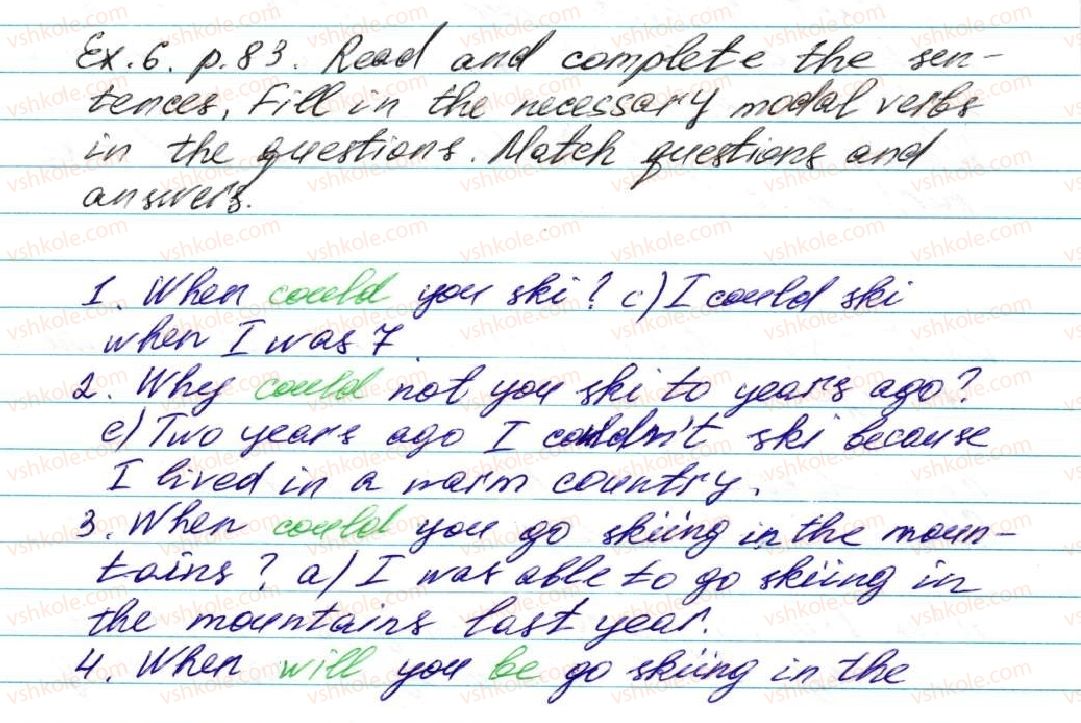 Ex. 6. p. 83. Read and complete the sen-
tences, Fill in the necessary modal verbs
in the questions. Match questions and
answers.
1. When could you ski? c) I could ski
when I was 7.
2. Why could not you ski to years ago?
e) Two years ago I couldn't ski because
I lived in a warm country.
3. When could you go skiing in the moun-
tains? a) I was able to go skiing in
the mountains last year.
4. When will you be go skiing in the